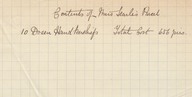 Contents of Miss Searle's Parcel
10 Dozen Handkerchiefs Total Cost